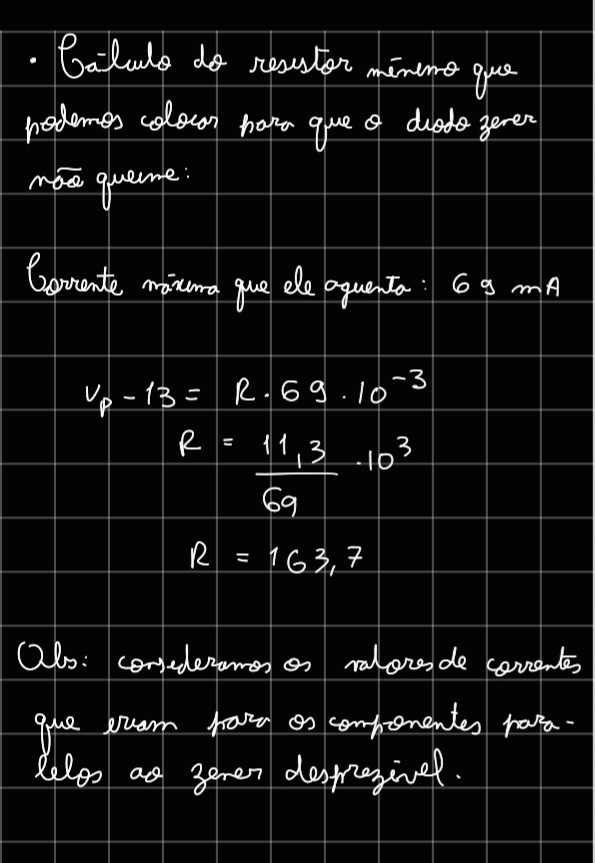 • Cálculo do resistor mínimo que
podemos colocar para que o diodo zener
não queime:
Corrente máxima que ele aguenta: 69 mA
Vp - 13 = R . 69 . 10^-3
R = 11,3/69 . 10^3
R = 163,7
Obs: consideramos os valores de correntes
que eriam para os componentes para-
lelos ao zener desprezível.